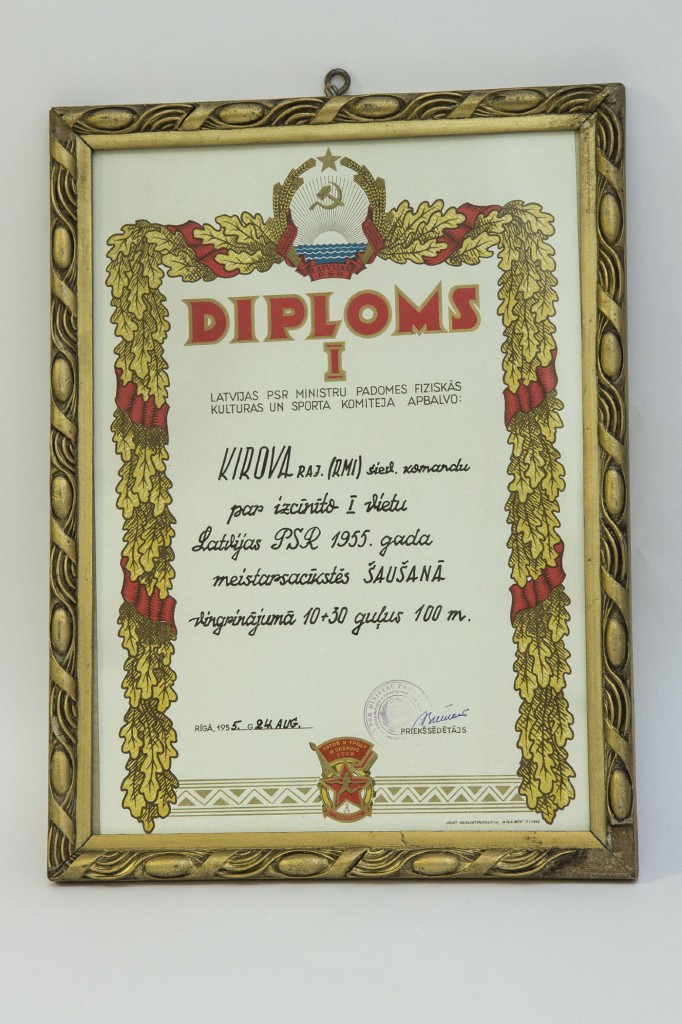 LATVIJAS
P.S.R.
DIPLOMS
I
LATVIJAS PSR MINISTRU PADOMES FIZISKĀS
KULTURAS UN SPORTA KOMITEJA APBALVO:
KIROVA RAJ. (RMI) siev. komandu
par izcīnīto I vietu
Latvijas PSR 1955. gada
meistarsacīkstēs ŠAUŠANĀ
vingrinājumā 10+30 guļus 100 m.
RĪGĀ, 1955. G. 24. AUG.
PRIEKŠSĒDĒTĀJS
ГОТОВ К ТРУДУ
И ОБОРОНЕ
СССР